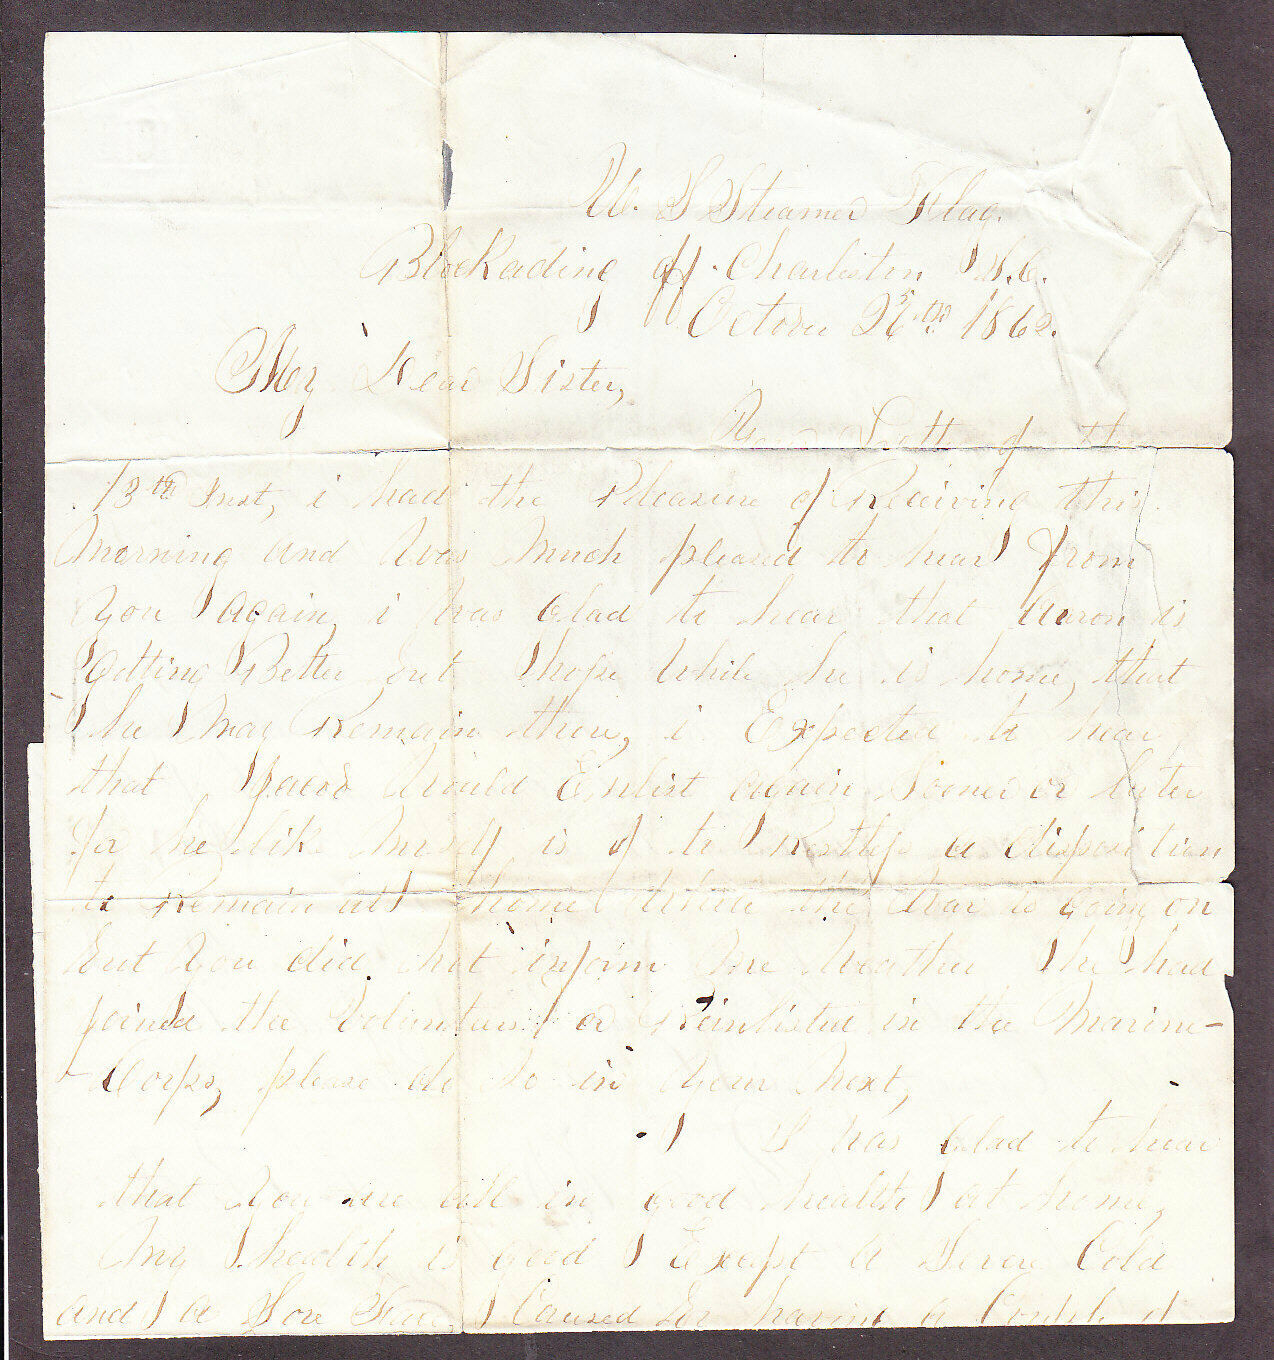 U. S Steamer Flag.
Blockading off Charleston S.C.
October 26th 1862.
My Dear Sister,
Your Letter of the
13th Inst, i had the Pleasure of Receiving this
Morning and Was Much pleased to hear from
You Again, i was Glad to hear that Aaron is
Getting Better yet I hope While he is home, that
he May Remain there, i Expected to hear
that Would Enlist again Sooner or later
for he like Myself is of to Restless a disposition
to Remain at home While the War is Going on
but You did not inform Me Weather he had
joined the Volunteers or Reinlisted in the Marine-
-Corps, please do so in Your Next,
I was Glad to hear
that You are all in good health at home,
My health is good Except a Severe Cold
and a Sore Face, Caused by having a Couple of